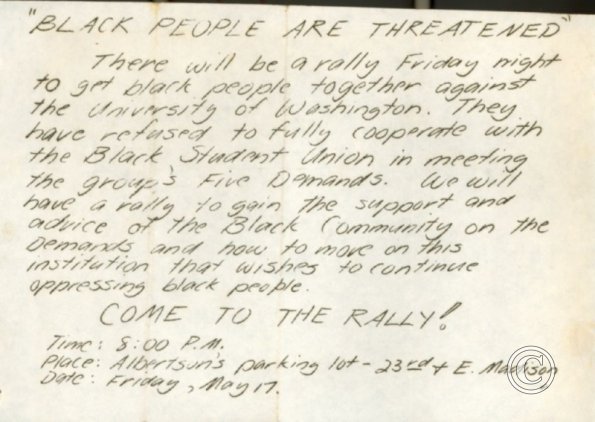 "BLACK PEOPLE ARE THREATENED"
There will be a rally Friday night
to get black people together against
the University of Washington. They
have refused to fully cooperate with
the Black Student Union in meeting
the group's Five Demands. We will
have a rally to gain the support and
advice of the Black Community on the
Demands and how to move on this
institution that wishes to continue
oppressing black people.
COME TO THE RALLY!
Time: 8:00 P.M.
Place: Albertson's parking lot - 23rd + E. Madison
Date: Friday, May 17.
©